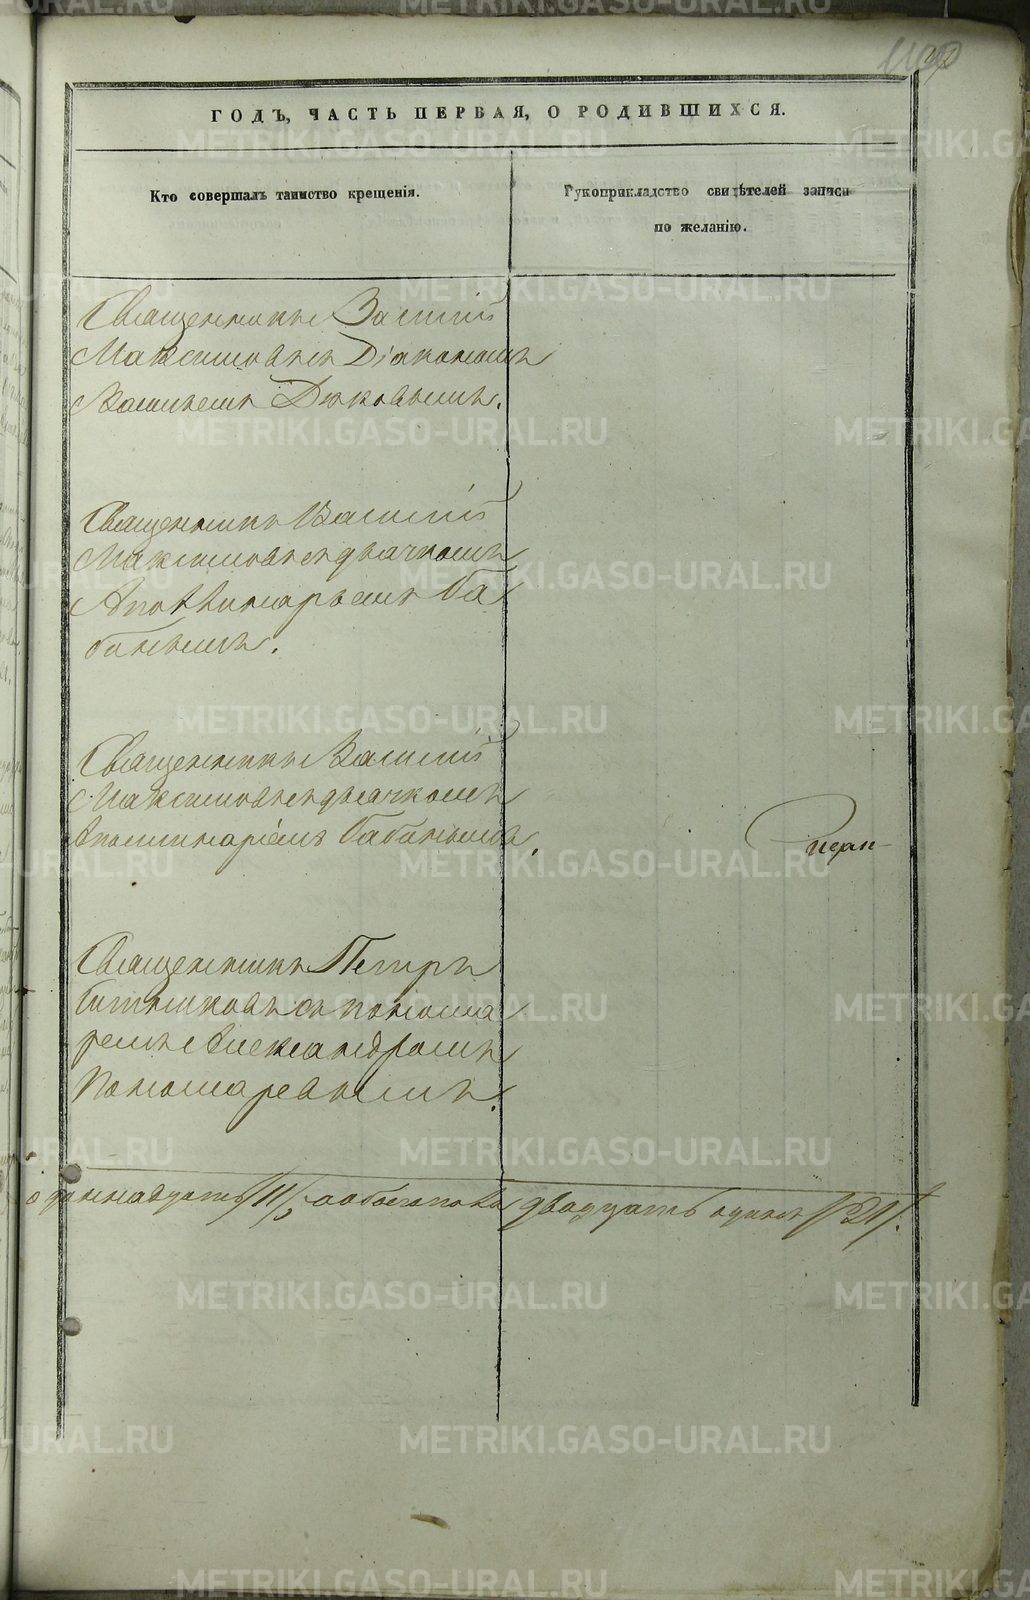 ГОДЪ, ЧАСТЬ ПЕРВАЯ, О РОДИВШИХСЯ.
Кто совершалъ таинство крещенія.
Рукоприкладство свидѣтелей записи
по желанію.
Священникъ Василій
Максимовъ съ Діакономъ
Василіемъ Дюковымъ.
Священникъ Василій
Максимовъ съ дьячкомъ
Аполлинарьемъ Ба
банымъ.
Священникъ Василій
Максимовъ съ дьячкомъ
Аполлинаріемъ Бабанымъ.
Священникъ Петръ
съ понома
ремъ Александромъ
Пономаревымъ.
одиннадцать /11/, а обоего пола двадцать одинъ /21/.
METRIKI.GASO-URAL.RU